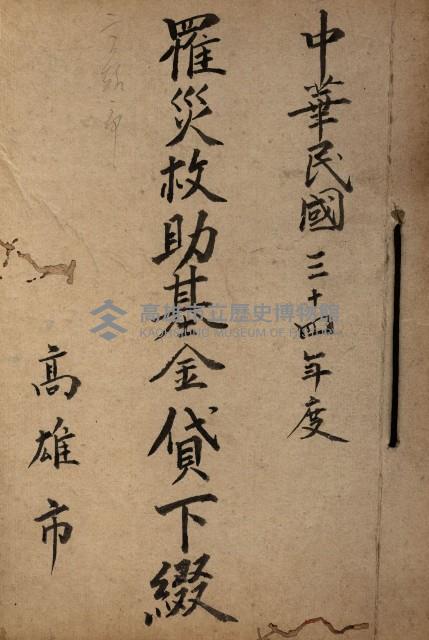 中華民國三十四年度
罹災救助基金貸下綴
高雄市
高雄市立歷史博物館
KAOHSIUNG MUSEUM OF HISTORY